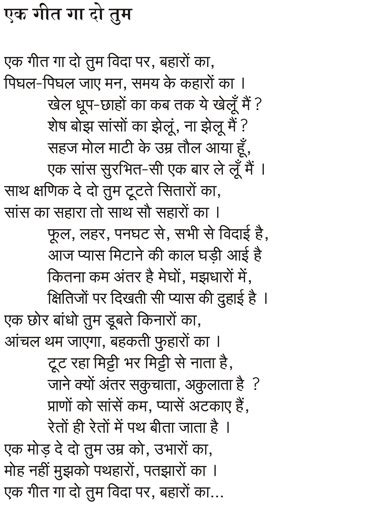 एक गीत गा दो तुम
एक गीत गा दो तुम विदा पर, बहारों का,
पिघल-पिघल जाए मन, समय के कहारों का ।
खेल धूप-छाहों का कब तक ये खेलूँ मैं ?
शेष बोझ सांसों का झेलूं, ना झेलू मैं ?
सहज मोल माटी के उम्र तौल आया हूँ,
एक सांस सुरभित-सी एक बार ले लूँ मैं ।
साथ क्षणिक दे दो तुम टूटते सितारों का,
सांस का सहारा तो साथ सौ सहारों का ।
फूल, लहर, पनघट से, सभी से विदाई है,
आज प्यास मिटाने की काल घड़ी आई है
कितना कम अंतर है मेघों, मझधारों में,
क्षितिजों पर दिखती सी प्यास की दुहाई है ।
एक छोर बांधो तुम डूबते किनारों का,
आंचल थम जाएगा, बहकती फुहारों का ।
टूट रहा मिट्टी भर मिट्टी से नाता है,
जाने क्यों अंतर सकुचाता, अकुलाता है ?
प्राणों को सांसें कम, प्यासें अटकाए हैं,
रेतों ही रेतों में पथ बीता जाता है ।
एक मोड़ दे दो तुम उम्र को, उभारों का,
मोह नहीं मुझको पथहारों, पतझारों का ।
एक गीत गा दो तुम विदा पर, बहारों का...